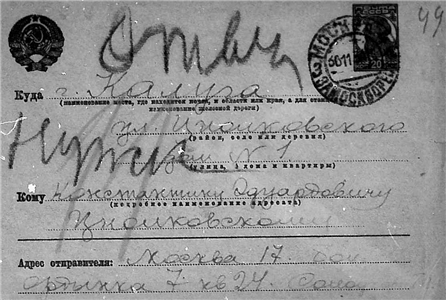 49
Ответ
ПОЧТА
СССР
20
МОСКВА
ЗАМОСКВОРЕЦ
Куда г. Калуга
(наименование места, где находится почта, и области или края, а для станций
наименование железной дороги)
ул. Циолковского
(район, село или деревня)
дом № 1
(улица, № дома и квартиры)
Кому Константину Эдуардовичу
(подробное наименование адресата)
Циолковскому
Адрес отправителя: Москва 17. Бол
Ордынка 7 кв 24.